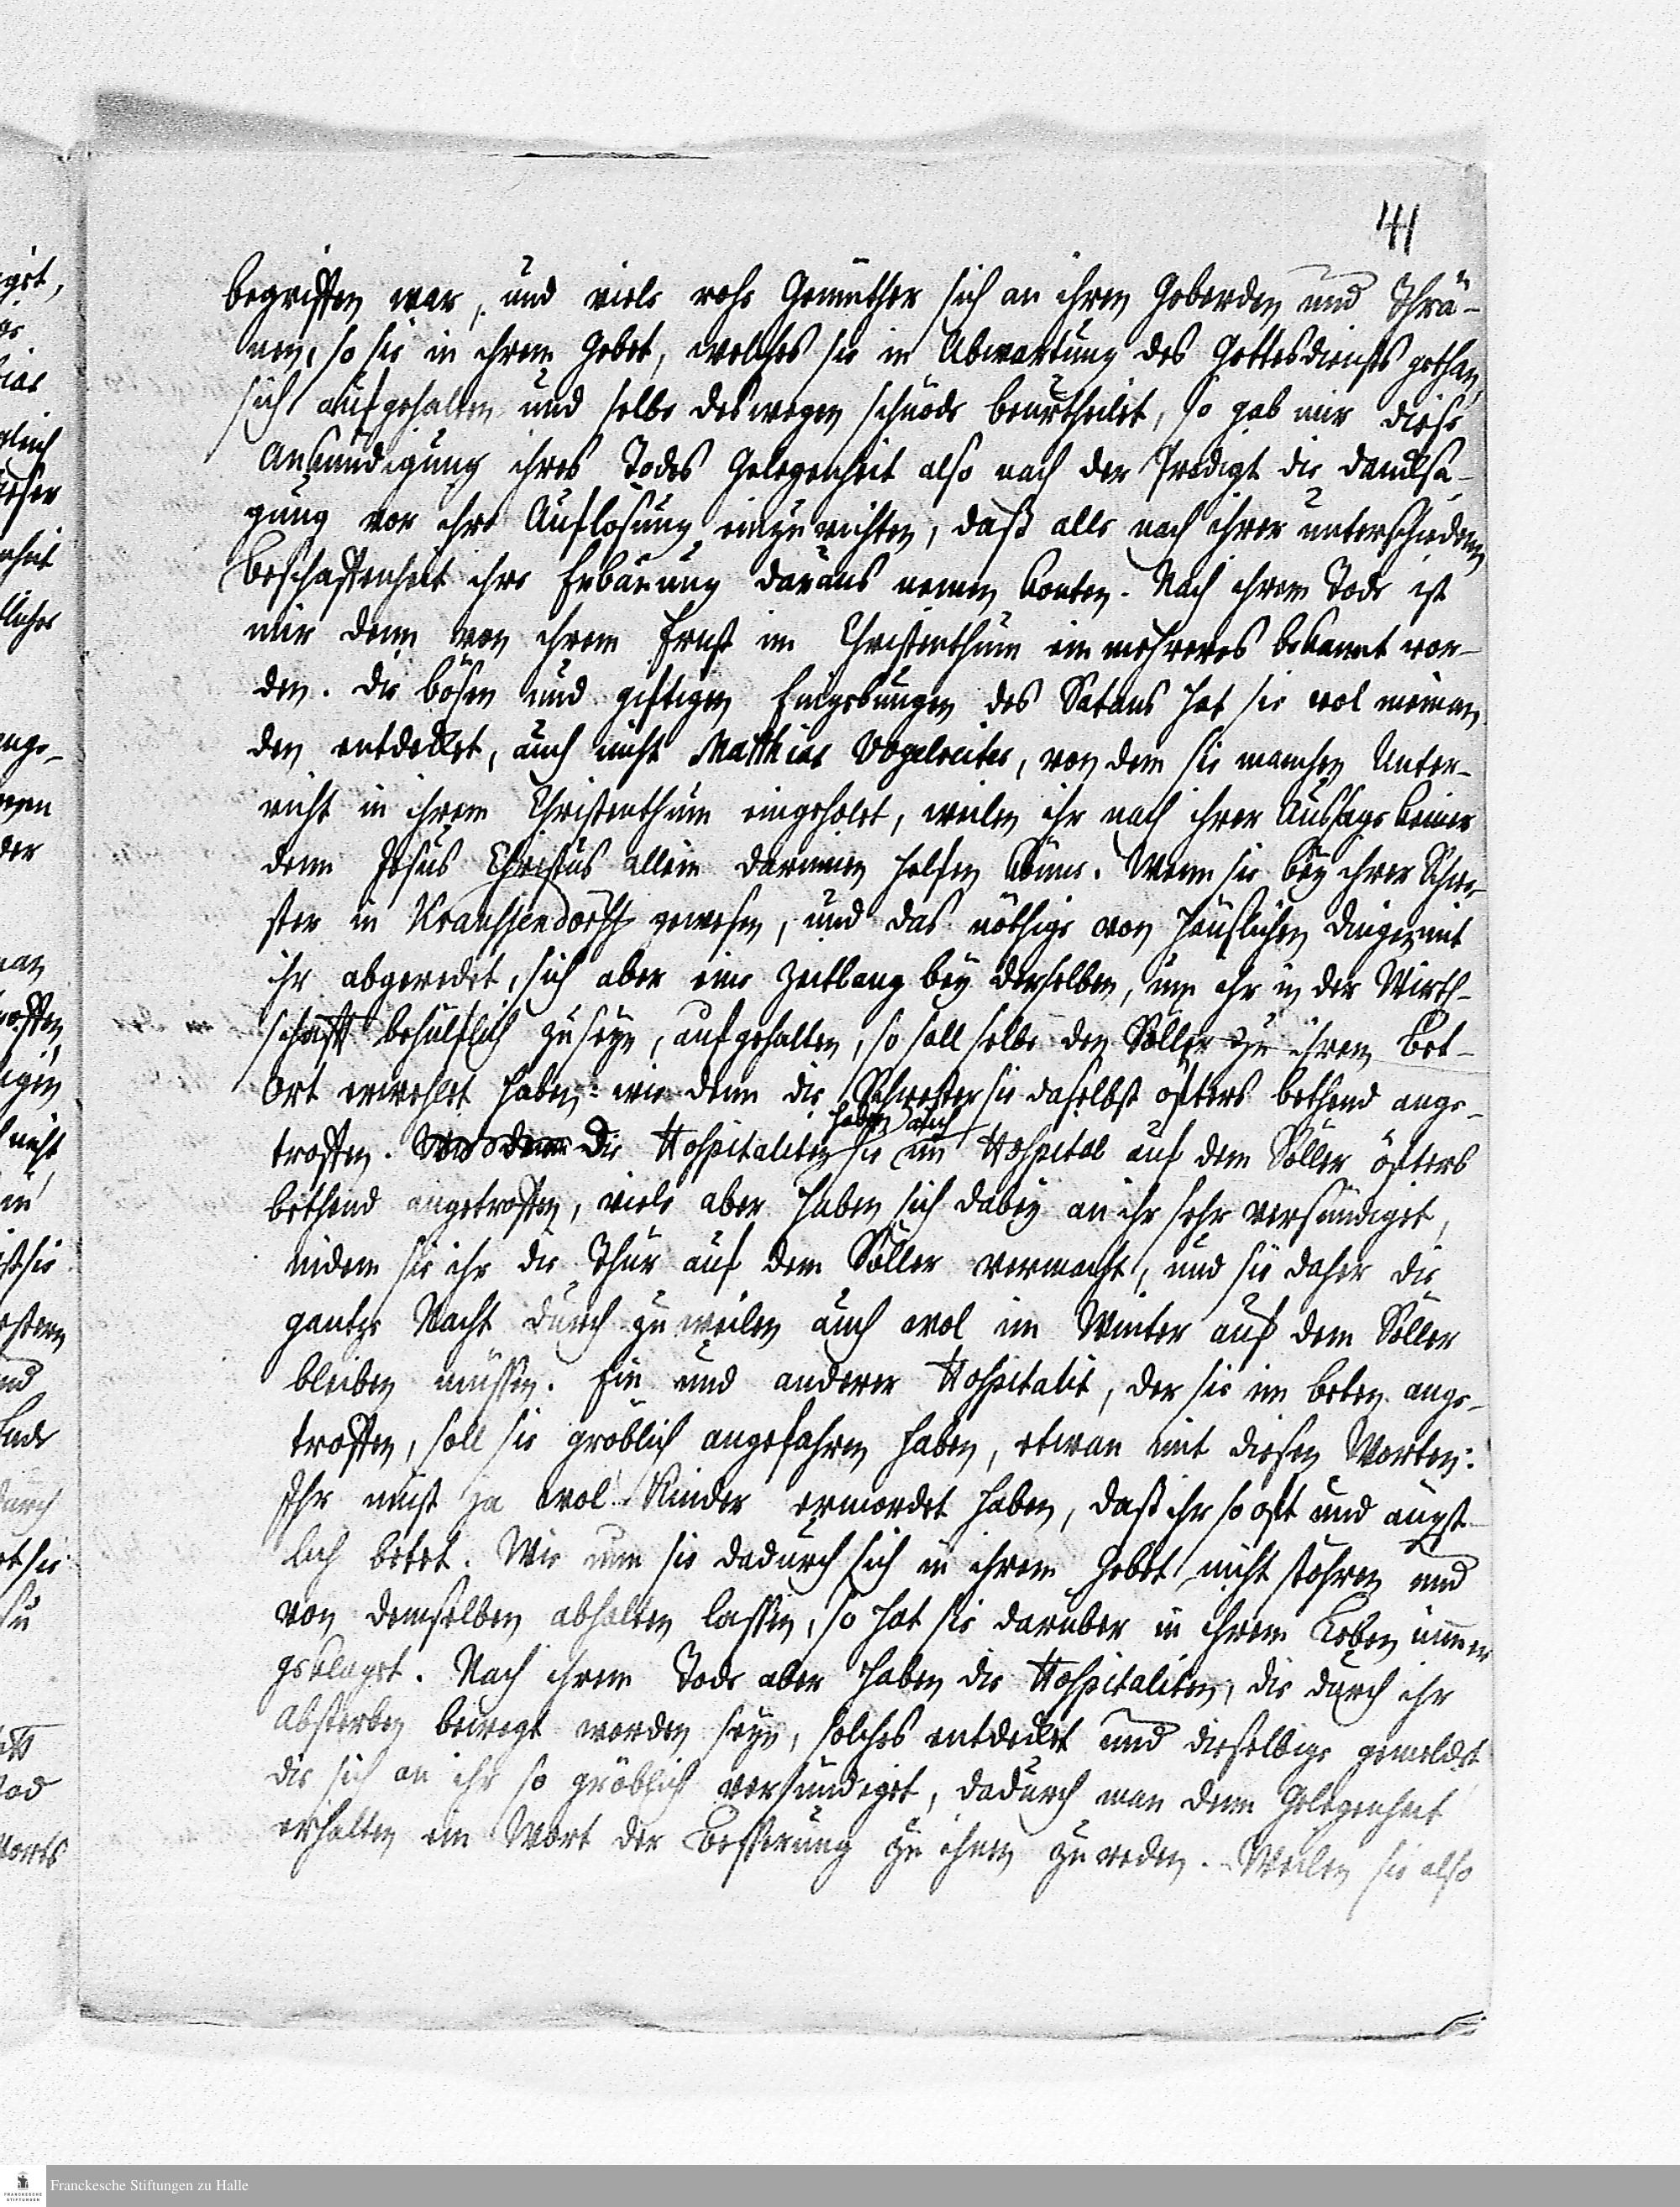 41
begriffen war, und viele rohe Gemüther sich an ihren Geberden und Thrä-
nen, so sie in ihrem Gebet, welches sie in Abwartung des Gottesdiensts gethan,
sich aufgehalten und selbe deswegen schnöde beurtheilet, so gab mir diese
Ankündigung ihres Todes Gelegenheit also nach der Predigt die Dancksa-
gung vor ihre Auflösung einzurichten, daß alle nach ihrer unterschiedenen
Beschaffenheit ihre Erbauung daraus nemen konten. Nach ihrem Tode ist
mir denn von ihrem Ernst im Christenthum ein mehreres bekannt wor-
den. Die bösen und giftigen Eingebungen des Satans hat sie wol nieman
den entdecket, auch nicht Matthias Vogelreiter, von dem sie manchen Unter-
richt in ihrem Christenthum eingeholet, weilen ihr nach ihrer Aussage keiner
denn Jesus Christus allein darinnen helfen könne. Wenn sie bey ihrer Schwe-
ster in Kraussendorff gewesen, und das nöthige von häuslichen Dingen mit
ihr abgeredet, sich aber eine Zeitlang bey derselben, um ihr in der Wirth-
schafft behülflich zu seyn, aufgehalten, so soll selbe den Söller zu ihrem Bet-
Ort erwehlet haben: wie denn die Schwester sie daselbst öfters bethend ange-
haben auch
troffen. Die Hospitaliten sie im Hospital auf dem Söller öfters
bethend angetroffen, viele aber haben sich dabey an ihr sehr versündiget,
indem sie ihr die Thür auf dem Söller vermacht, und sie daher die
gantze Nacht durch zuweilen auch wol im Winter auf dem Söller
bleiben müssen. Ein und anderer Hospitalit, der sie im beten ange-
troffen, soll sie gröblich angefahren haben, etwan mit diesen Worten:
Ihr müst ja wol Kinder ermordet haben, daß ihr so oft und ängst-
lich betet. Wie nun sie dadurch sich in ihrem Gebet nicht stöhren und
von demselben abhalten lassen, so hat sie darüber in ihrem Leben nimmer
geklaget. Nach ihrem Tode aber haben die Hospitaliten, die durch ihr
Absterben bewegt worden seyn, solches entdecket und dieselbige gemeldet
die sich an ihr so gröblich versündiget, dadurch man denn Gelegenheit
erhalten ein Wort der Besserung zu ihnen zu reden. Weilen sie also
Franckesche Stiftungen zu Halle